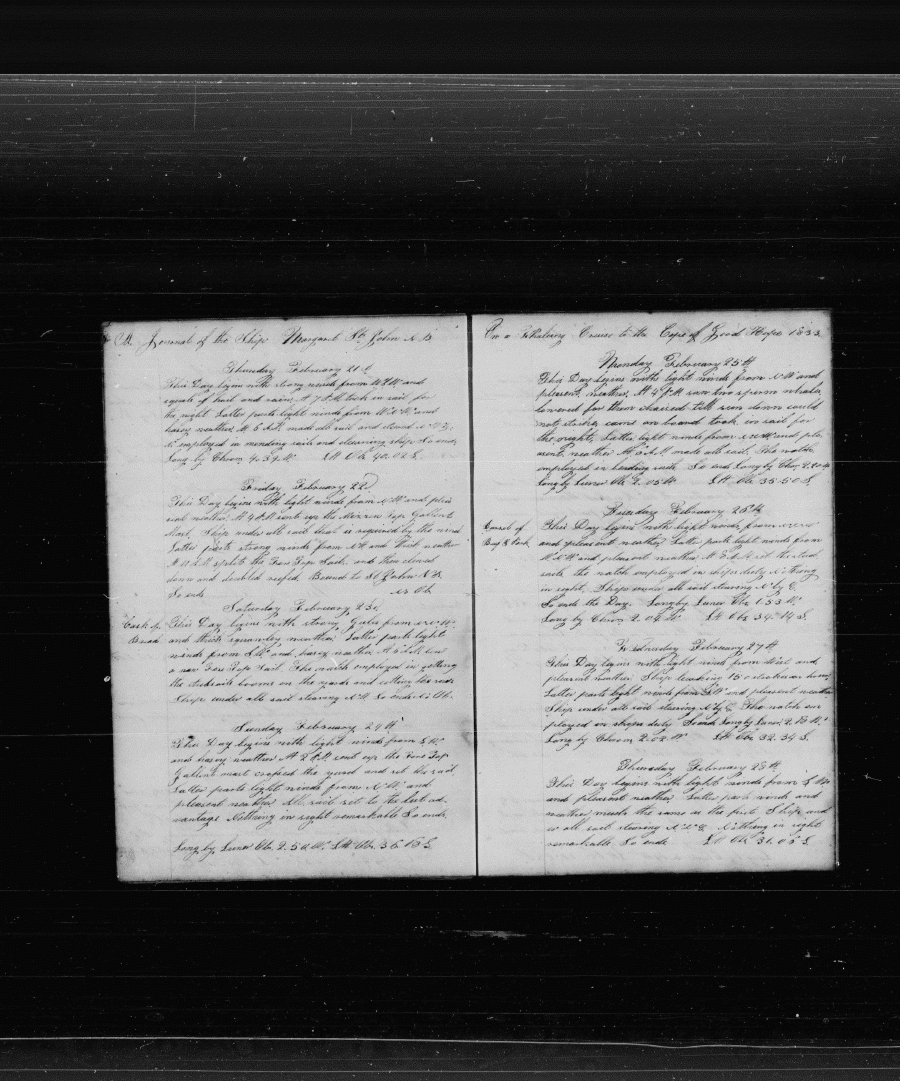 A Journal of the Ship Margaret St. John N B
Thursday February 21st
This Day begins with strong winds from WNW and
squals of hail and rain, At 7 P.M. took in sail for
the night. Latter parts light winds from W.N.W. and
hazey weather At 6 A.M. made all sail and steered N W by
N employed in mending sails and cleaning ship So ends
Long by Chrom 4.39. W. Lat Ob. 40.02 S.
Friday February 22d
This Day begins with light winds from N W and plea
sant weather At 4 P.M. sent up the Mizzen Top Gallent
Mast. Ship under all sail that is required by the wind
Latter parts strong winds from and thick weather
At 11 A.M. split the Fore Top Sail, and then
down and doubled reefed. Bound to St. John N.B.
So ends no Ob.
Saturday February 23d
Cask of
Bread
This Day begins with strong Gales from
and thick squamley weather Latter parts light
winds from and hazey weather At 6 A.M. bent
a new Fore Top Sail. The watch employed in getting
the studsails booms on the yards and
Ship under all sail stearing So ends No Ob.
Sunday February 24th
This Day begins with light winds from S W
and hazey weather At 2 P.M. sent up the Fore Top
Gallent mast crossed the yard and set the sail
Latter parts light winds from N W. and
pleasent weather All sail set to the best ad
vantage Nothing in sight remarkable So ends.
Long by Lunar Ob. 2.50 W. Lat Ob. 36.13 S.
On a Whaleing Cruise to the Cape of Good Hope 1833
Monday February 25th
This Day begins with light winds from N W and
pleasent weather, At 4 P.M. saw two sperm whales
lowered for them chaised till sun down could
not strike, came on board took in sail for
the night, Latter light winds from W N W and plea
sent weather At 5 A.M. made all sail. The watch
employed in bending sails. So ends Long by Chro. 2.20 W
Long by Lunar Ob. 2.05 W Lat Ob. 35.50 S.
Tuesday February 26th
Barrel of
Beef & Pork
This Day begins with light winds from
and pleasent weather Latter parts light winds from
W N W and pleasent weather At 5 A.M. set the stud
sails the watch employed in ships duty Nothing
in sight. Ship under all sail stearing N by E.
So ends the Day. Long by Lunar Ob. 1.53 W.
Long by Chrom 2.04 W. Lat Ob. 34.14 S.
Wednesday February 27th
This Day begins with light winds from West and
pleasent weather, Ship leaking 150 strokes an hour,
Latter parts light winds from S W and pleasent weather
Ship under all sail stearing N by E. The watch em
ployed in ships duty So ends Long by Lunar, 2.13 W.
Long by Chrom 2.02 W Lat Ob. 32.34 S.
Thursday February 28th
This Day begins with light winds from S W
and pleasent weather Latter parts winds and
weather much the same as the first Ship und
er all sail stearing Nothing in sight
remarkable So ends Lat Ob. 31.05 S.